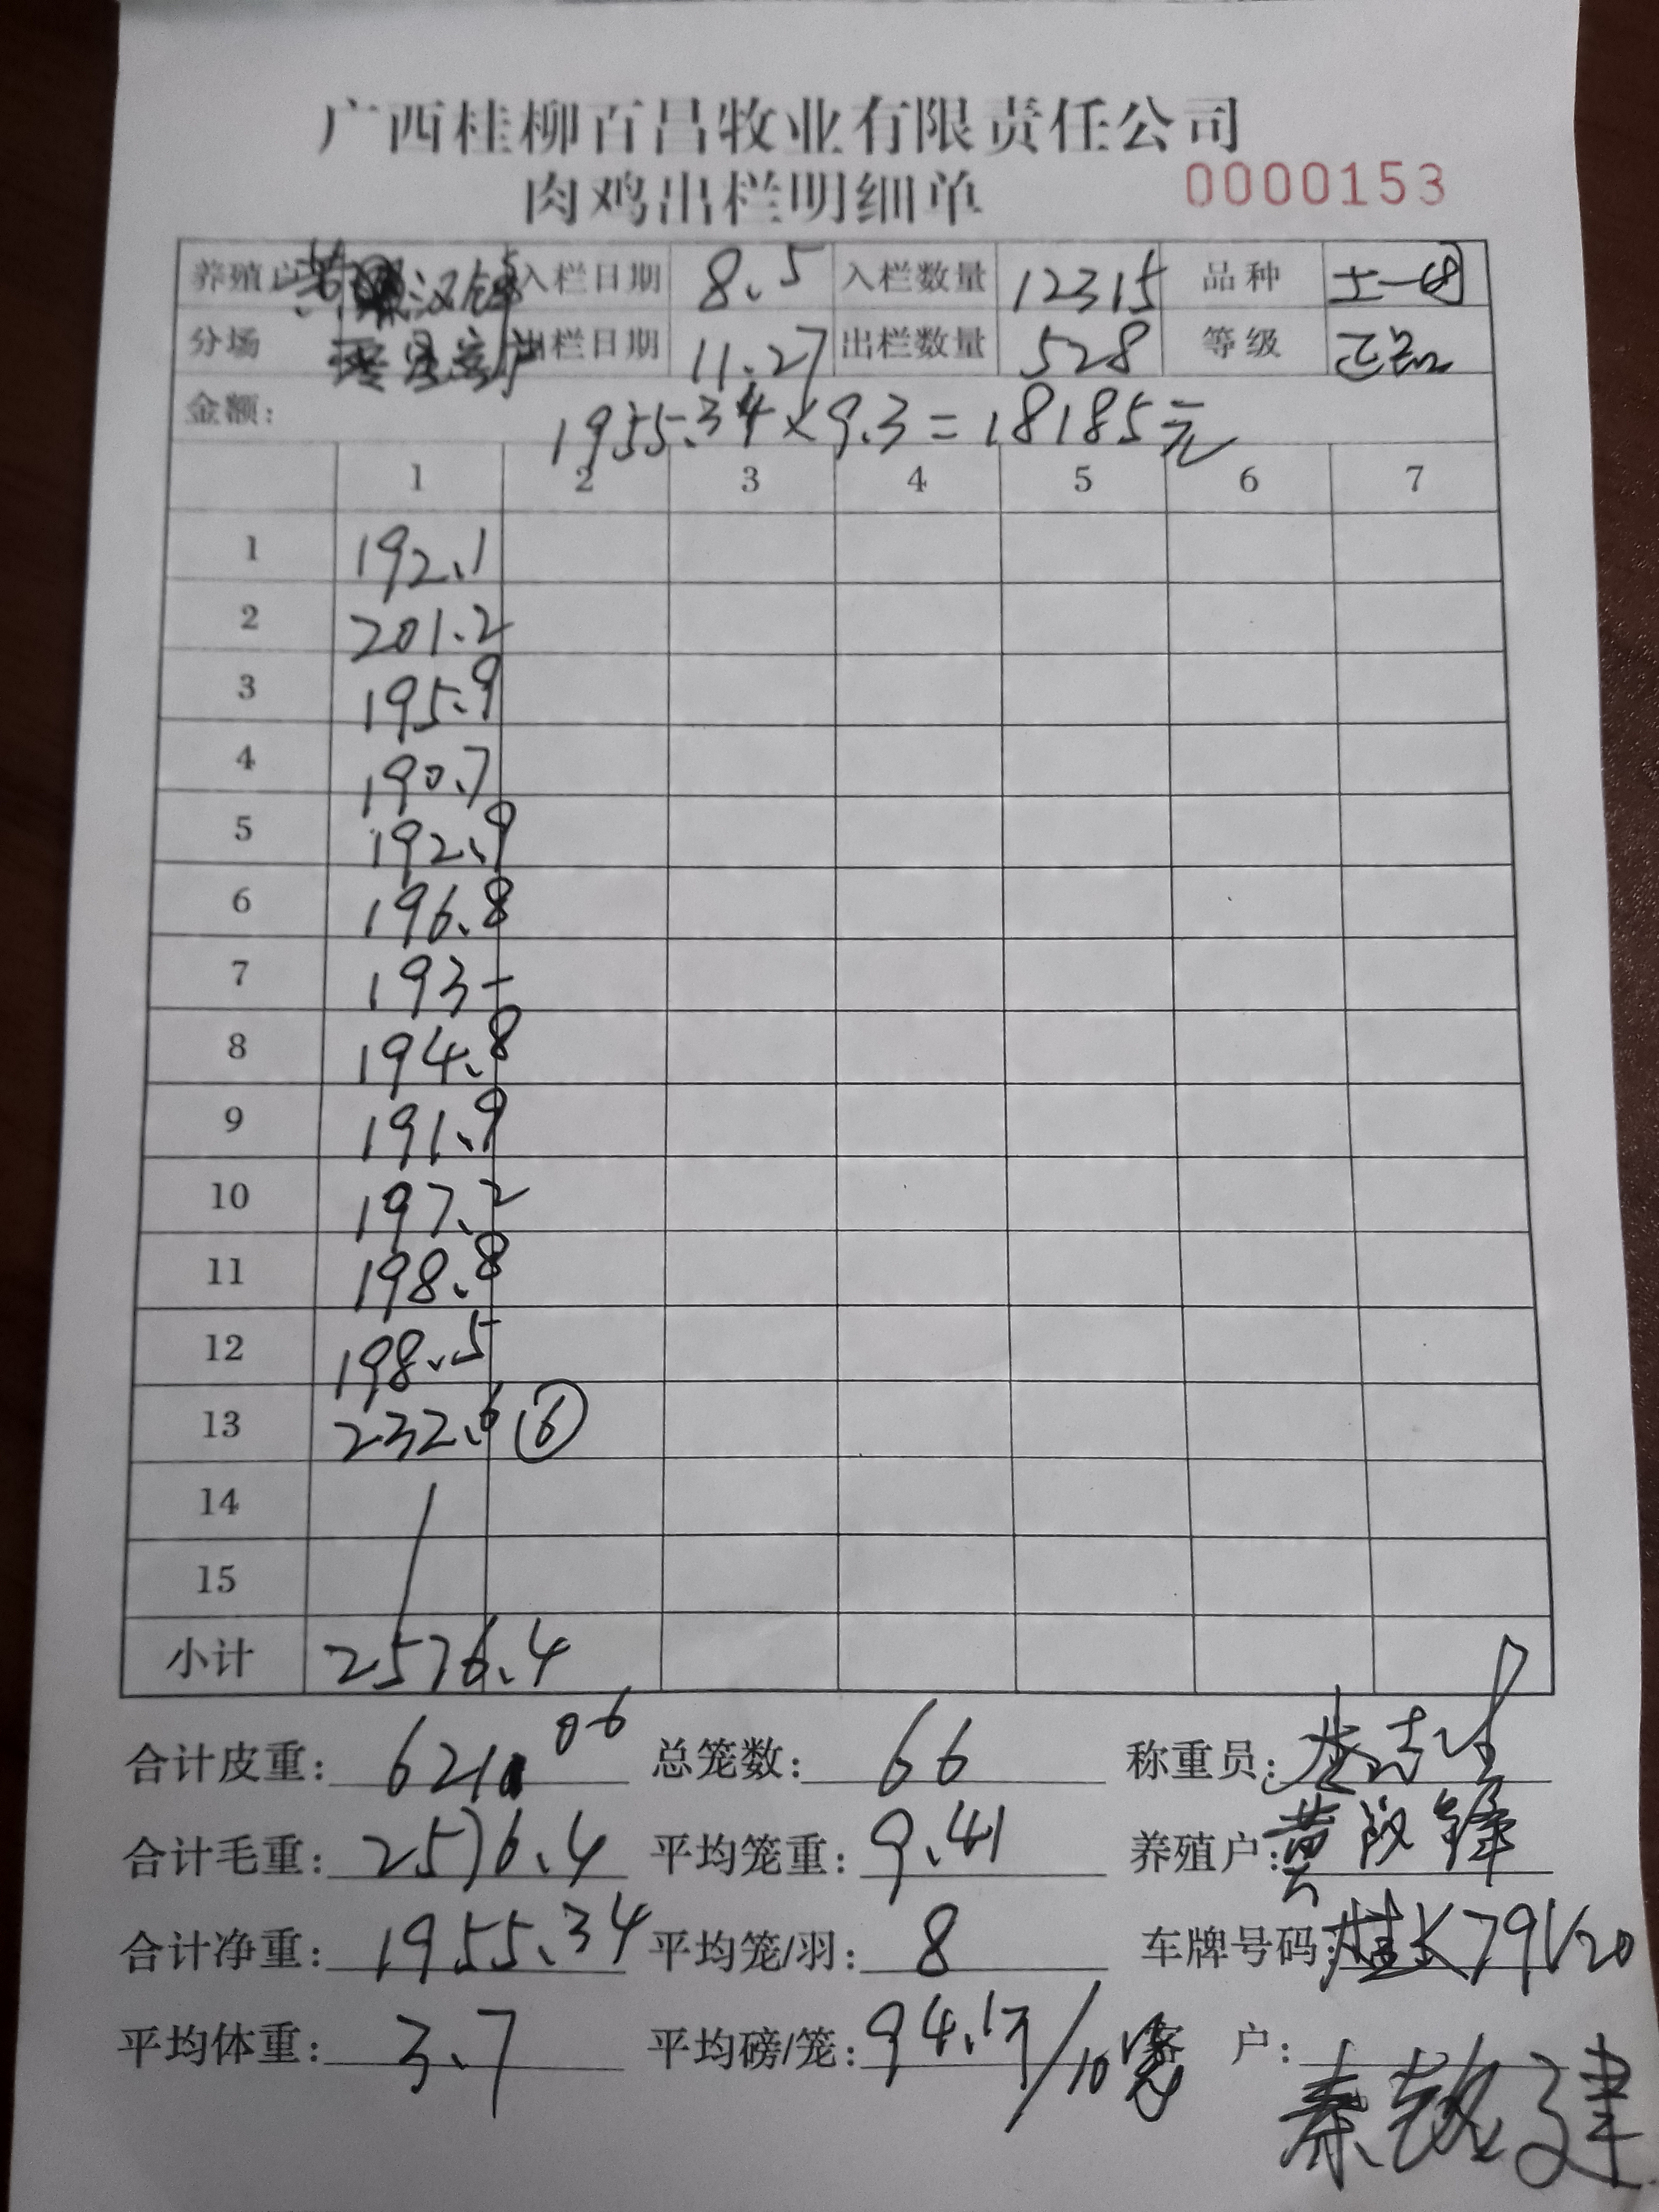 广西桂柳百昌牧业有限责任公司
肉鸡出栏明细单 0000153
养殖户 入栏日期 8.5 入栏数量 12315 品种 土一
分场 出栏日期 11.27 出栏数量 528 等级 正品
金额: 1955.34×9.3=18185元
1 2 3 4 5 6 7
1 192.1
2 201.2
3 195.9
4 190.7
5 192.9
6 196.8
7 193-
8 194.8
9 191.9
10 197.2
11 198.8
12 198.5
13 232.6 ⑥
14
15
小计 2576.4
合计皮重: 621.06 总笼数: 66 称重员:
合计毛重: 2576.4 平均笼重: 9.41 养殖户: 黄 锋
合计净重: 1955.34 平均笼/羽: 8 车牌号码: 桂K79V20
平均体重: 3.7 平均磅/笼: 94.1 /10 户:
秦 建